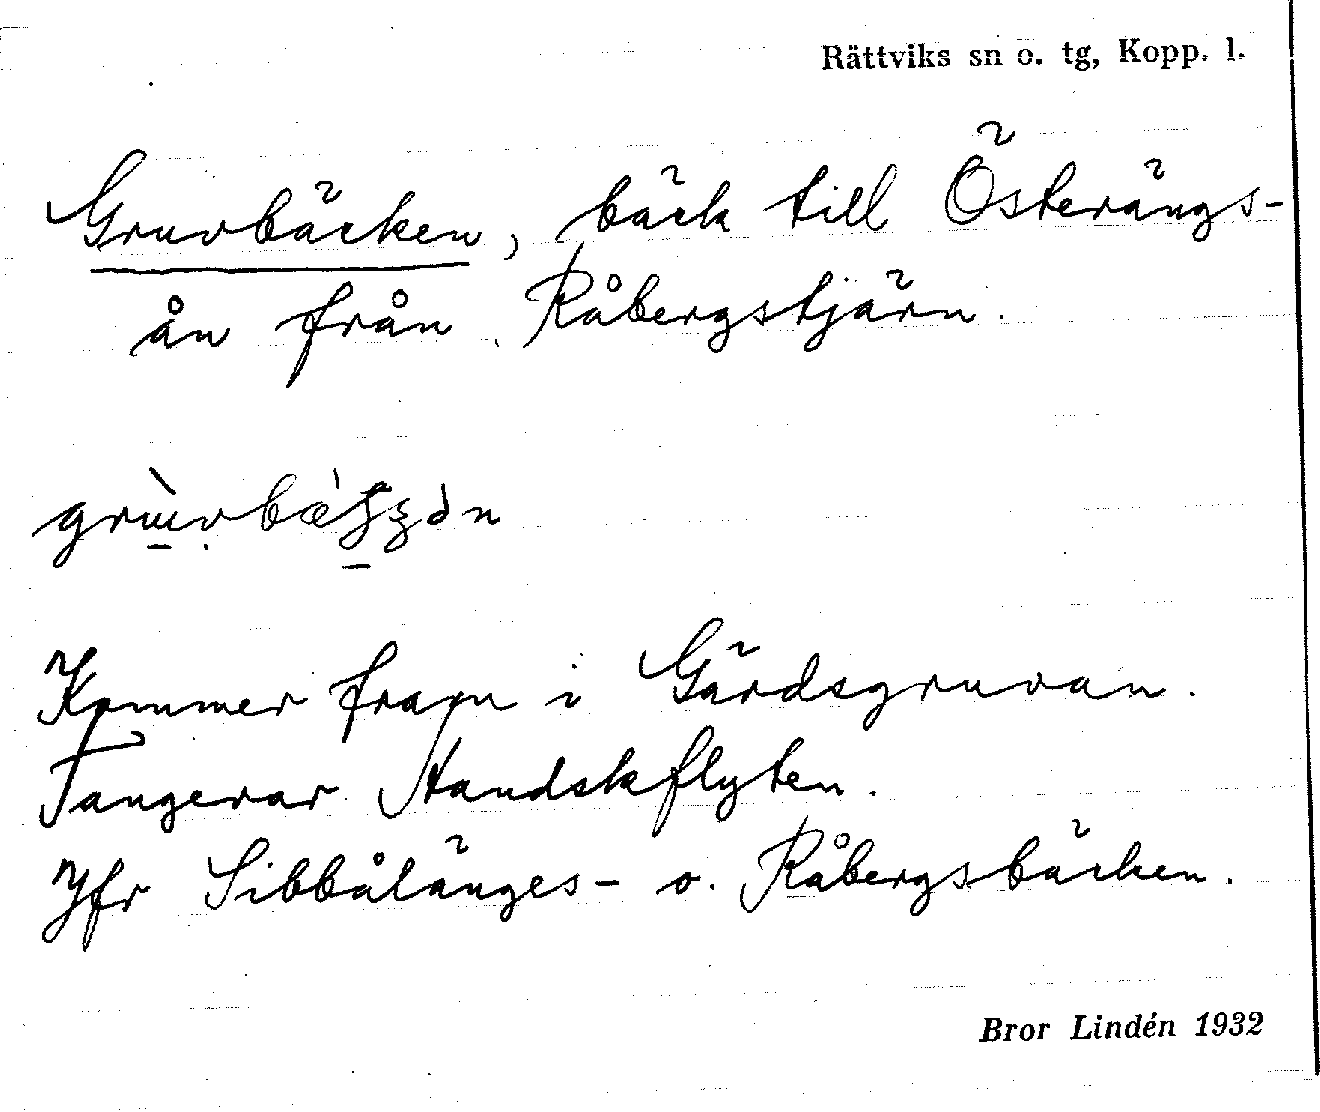 Rättviks sn o. tg, Kopp. l.
Gruvbäcken, bäck till Österängs-
ån från Råbergstjärn.
Kommer fram i Gärdsgruvan.
Tangerar Handskflyten.
Jfr Sibbålänges- o. Råbergsbäcken.
Bror Lindén 1932